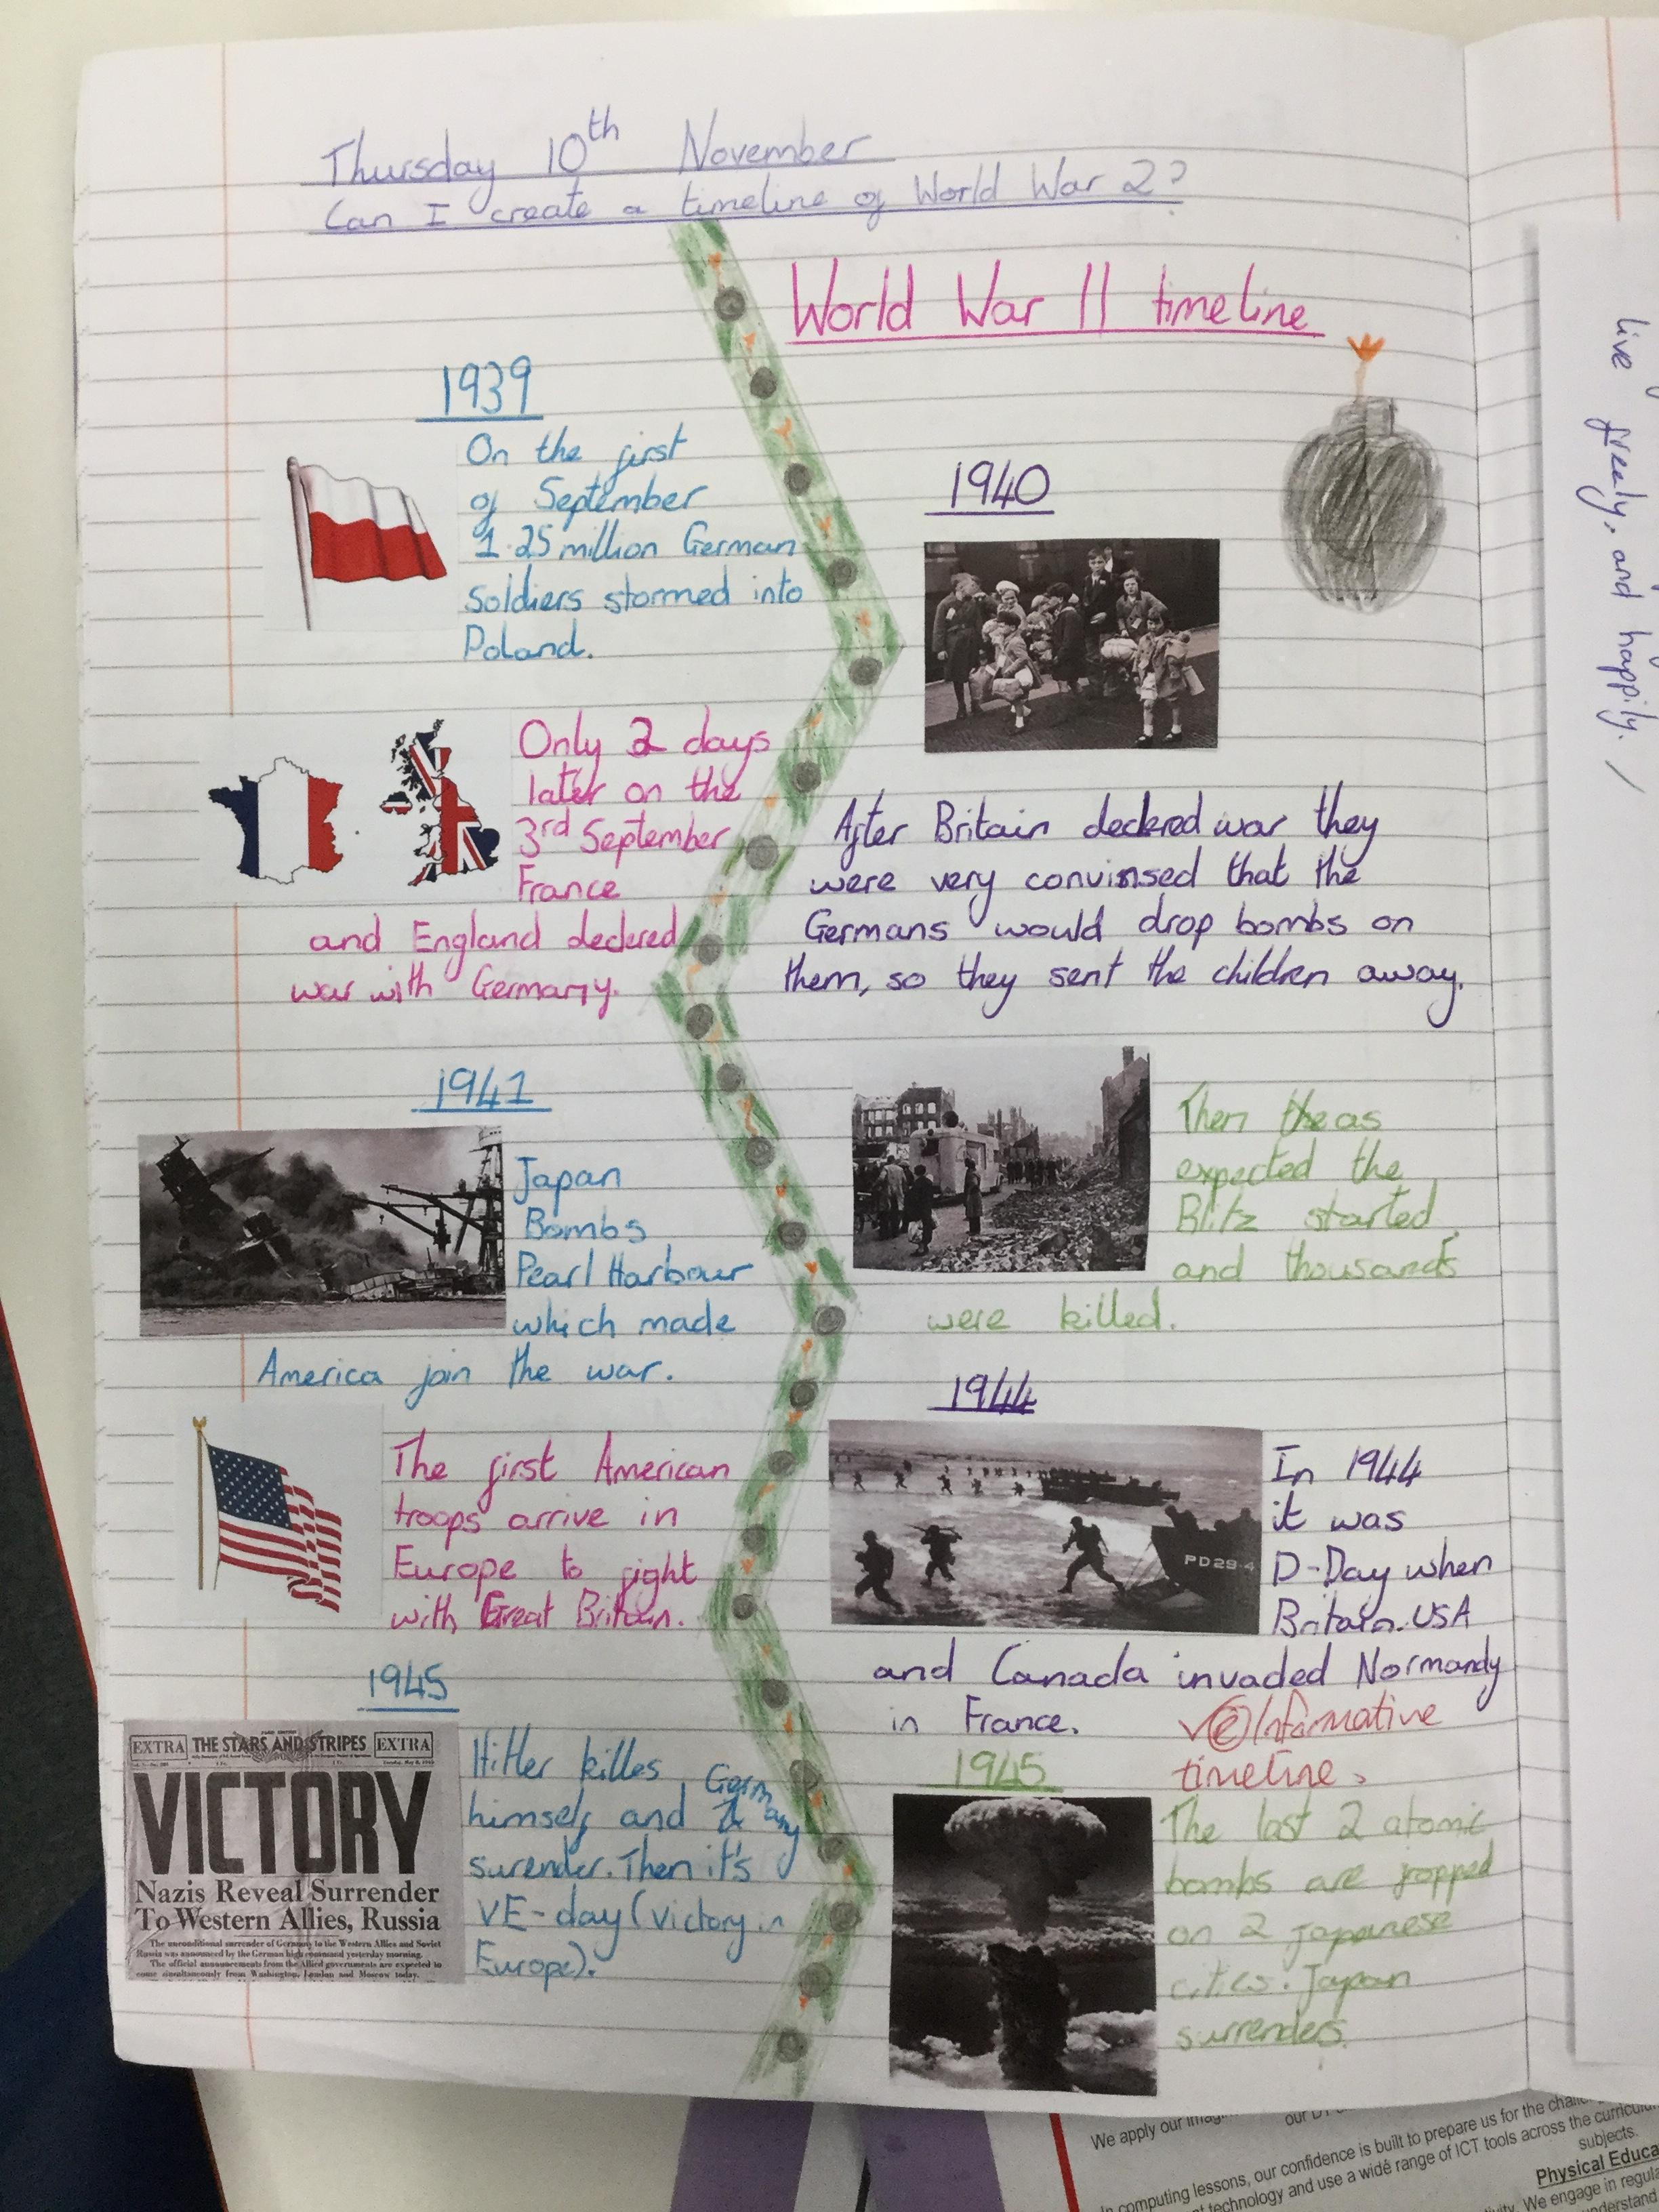 Thursday 10th November
Can I create a timeline of World War 2?
World War II timeline
1939
On the first
of September
1.25 million German
Soldiers stormed into
Poland.
Only 2 days
later on the
3rd September
France
and England declered
war with Germany.
1940
After Britain declered war they
were very convinsed that the
Germans would drop bombs on
them, so they sent the children away.
Then the as
expected the
Blitz started
and thousands
were killed.
1941
Japan
Bombs
Pearl Harbour
which made
America join the war.
The first American
troops arrive in
Europe to fight
with Great Britain.
1944
PD29-4
In 1944
it was
D-Day when
Britain. USA
and Canada invaded Normandy
in France.
Informative
timeline.
1945
EXTRA THE STARS AND STRIPES EXTRA
VICTORY
Nazis Reveal Surrender
To Western Allies, Russia
The unconditional surrender of Germany to the Western Allies and Soviet
Russia was announced by the German high command yesterday morning.
The official announcements from the Allied governments are expected to
come simultaneously from Washington, London and Moscow today.
Hitler killes
himself and Germany
surender. Then it's
VE-day (victory in
Europe).
1945
The last 2 atomic
bombs are propped
on 2 Japanese
cities. Japan
surrenders.
live freely, and happily.
We apply our
our
In computing lessons, our confidence is built to prepare us for the
technology and use a wide range of ICT tools across the
subjects.
Physical
We engage in